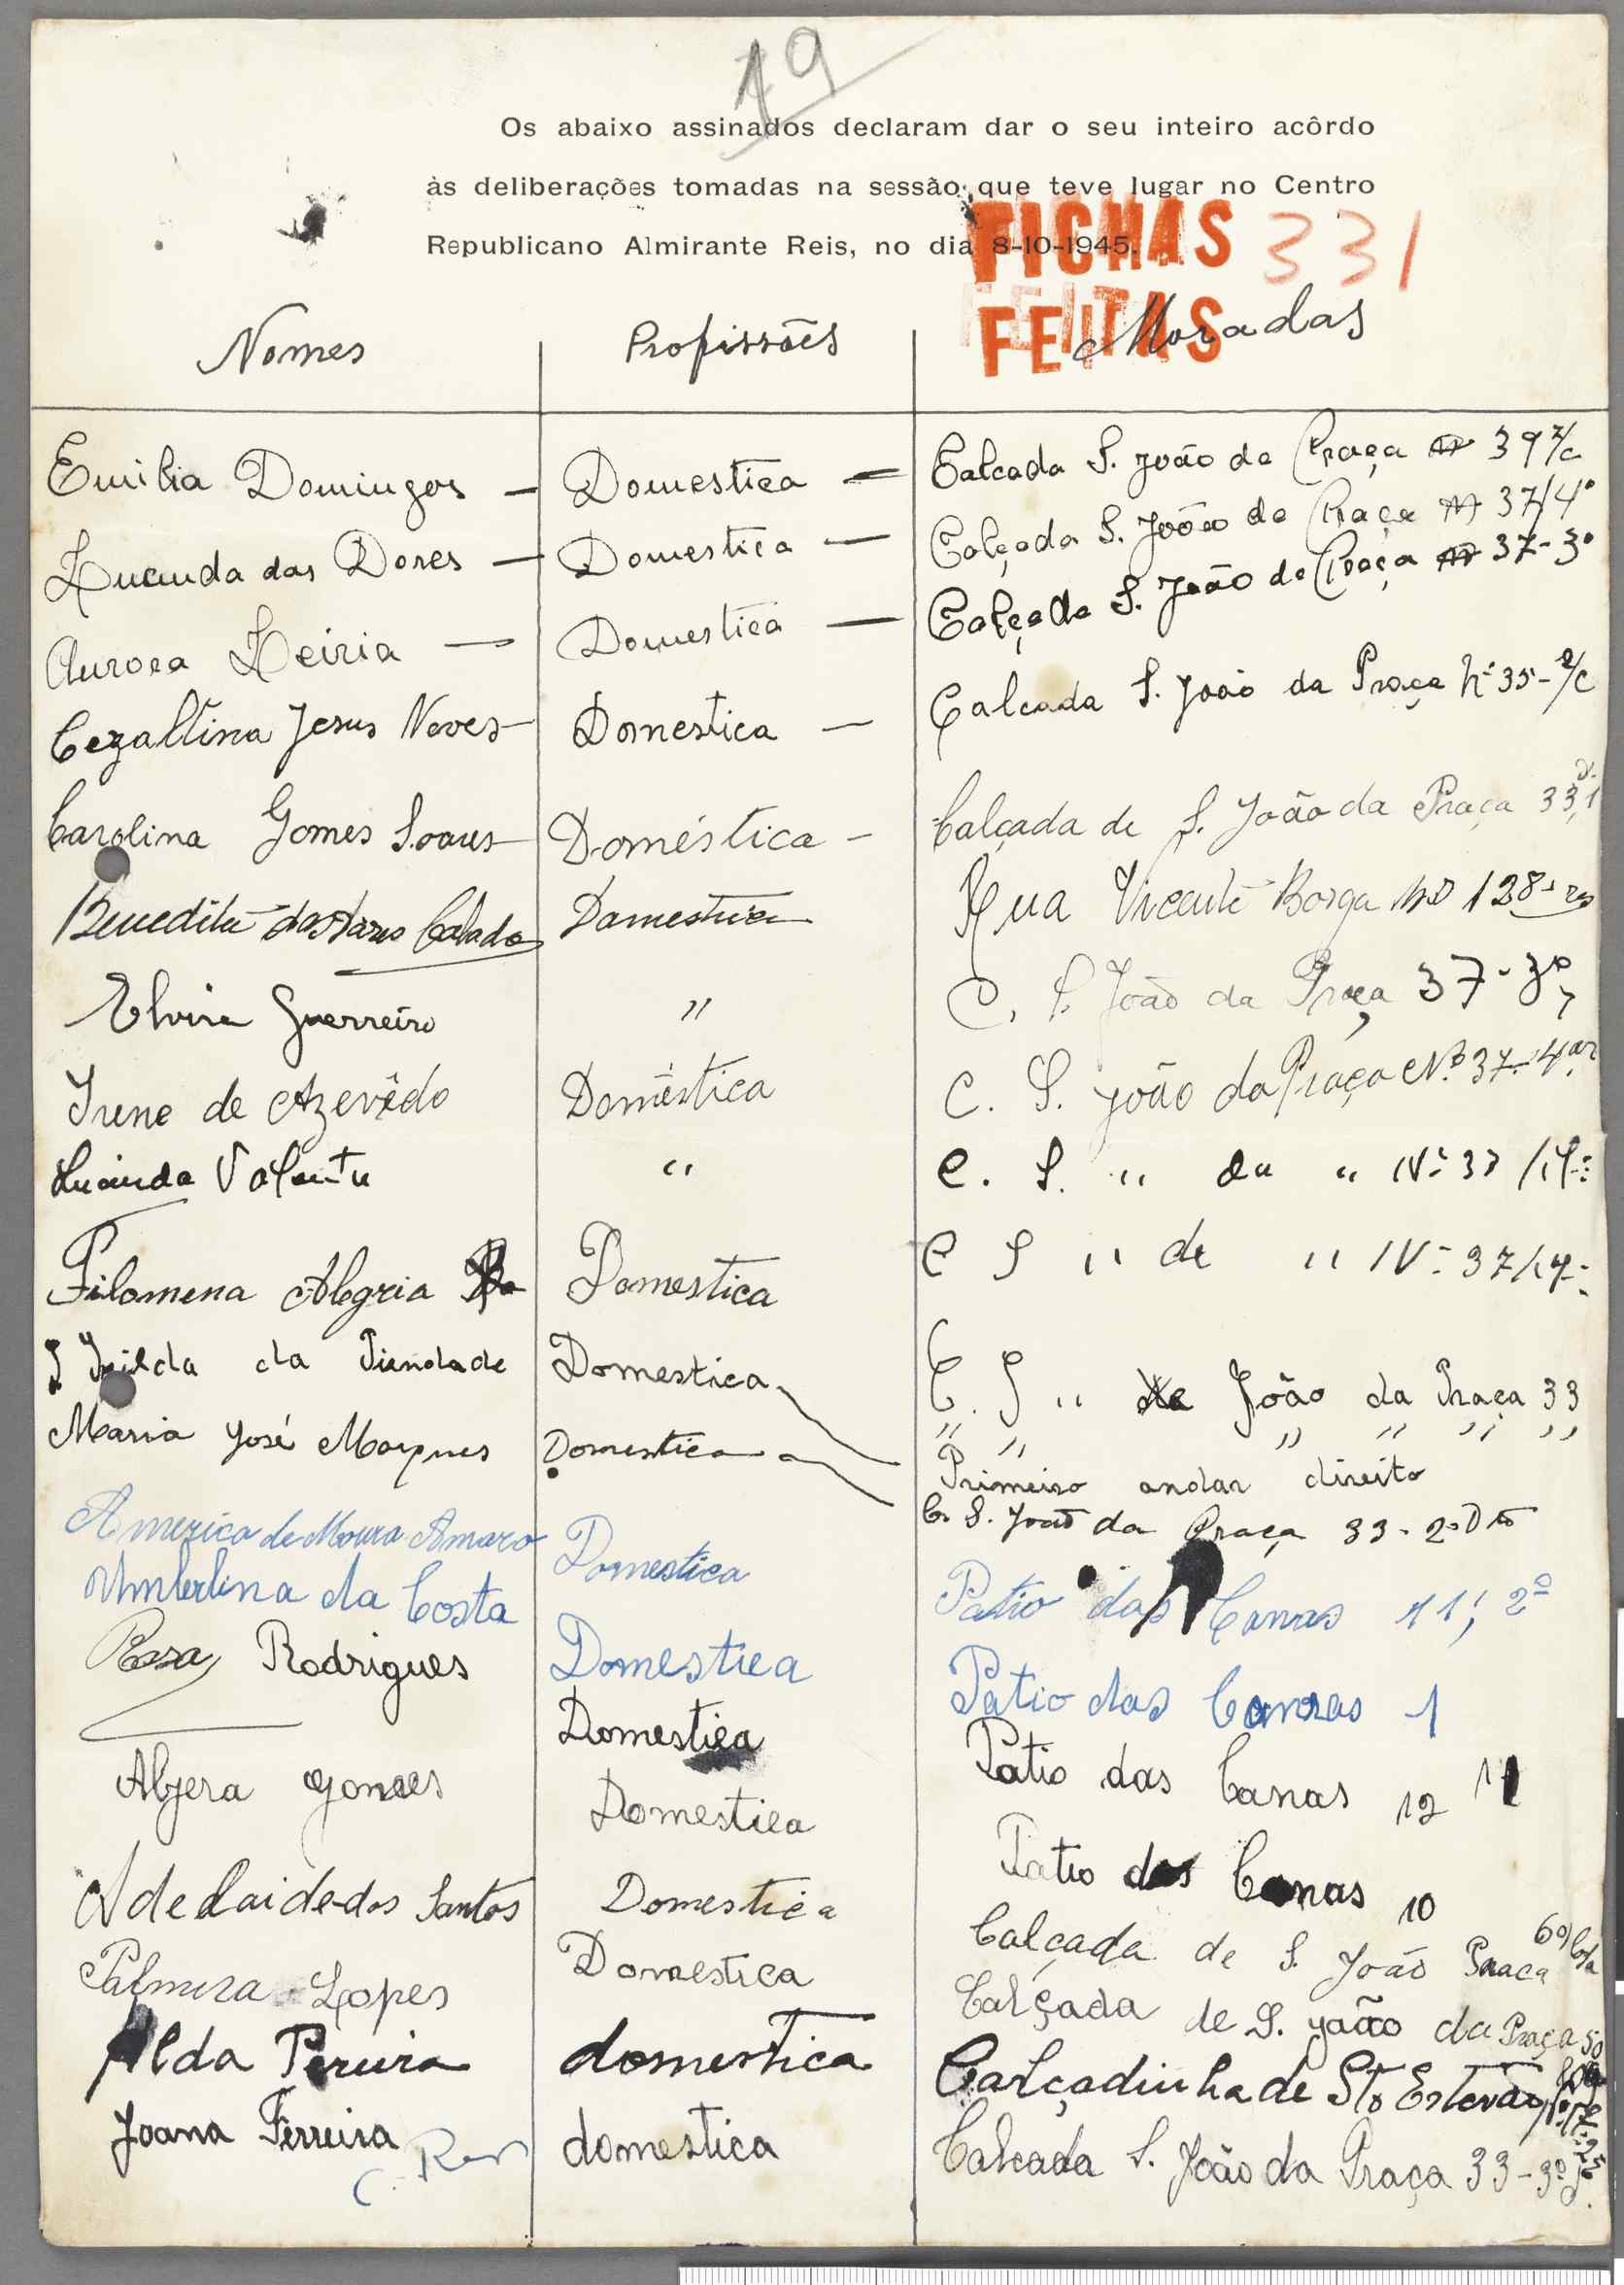 19
Os abaixo assinados declaram dar o seu inteiro acôrdo
às deliberações tomadas na sessão que teve lugar no Centro
Republicano Almirante Reis, no dia 8-10-1945.
FICHAS 331
FEITAS
Nomes Profissões Moradas
Emilia Domingos — Domestica — Calcada S. João da Praça 39 r/c
Lucinda das Dores — Domestica — Calçada S. João da Praça 37/4º
Aurora Leiria — Domestica — Calçada S. João da Praça 37-3º
Cezaltina Jesus Neves — Domestica — Calcada S. João da Praça Nº 35-r/c
Carolina Gomes Soares — Doméstica — Calçada de S. João da Praça 33,1
Benedita das Calado Domestica Rua Vicente Borga Nº 128
Elvira Guerreiro " C. S. João da Praça 37-3º
Irene de Azevêdo Doméstica C. S. João da Praça Nº 37-4º
Lucinda Valente " C. S. " da " Nº 37
Filomena Alegria Domestica C S " de " Nº 37
Irilda da Piendade Domestica C. S " João da Praça 33
Maria José Marques Domestica " " " " " "
Primeiro andar direito
C. S. João da Praça 33-2º Dto
America de Moura Amaro Domestica Patio das Canas 11, 2º
Umbelina da Costa Domestica Patio das Canas 1
Rosa Rodrigues Domestica Patio das Canas 12 11
Algera Gomes Domestica Patio das Canas 10
Adelaide dos Santos Domestica Calçada de S. João Praca
Palmira Lopes Domestica Calçada de S. João da Praça 50
Alda Pereira domestica Calçadinha de Sto Estevão
Joana Ferreira domestica Calcada S. João da Praça 33-3º